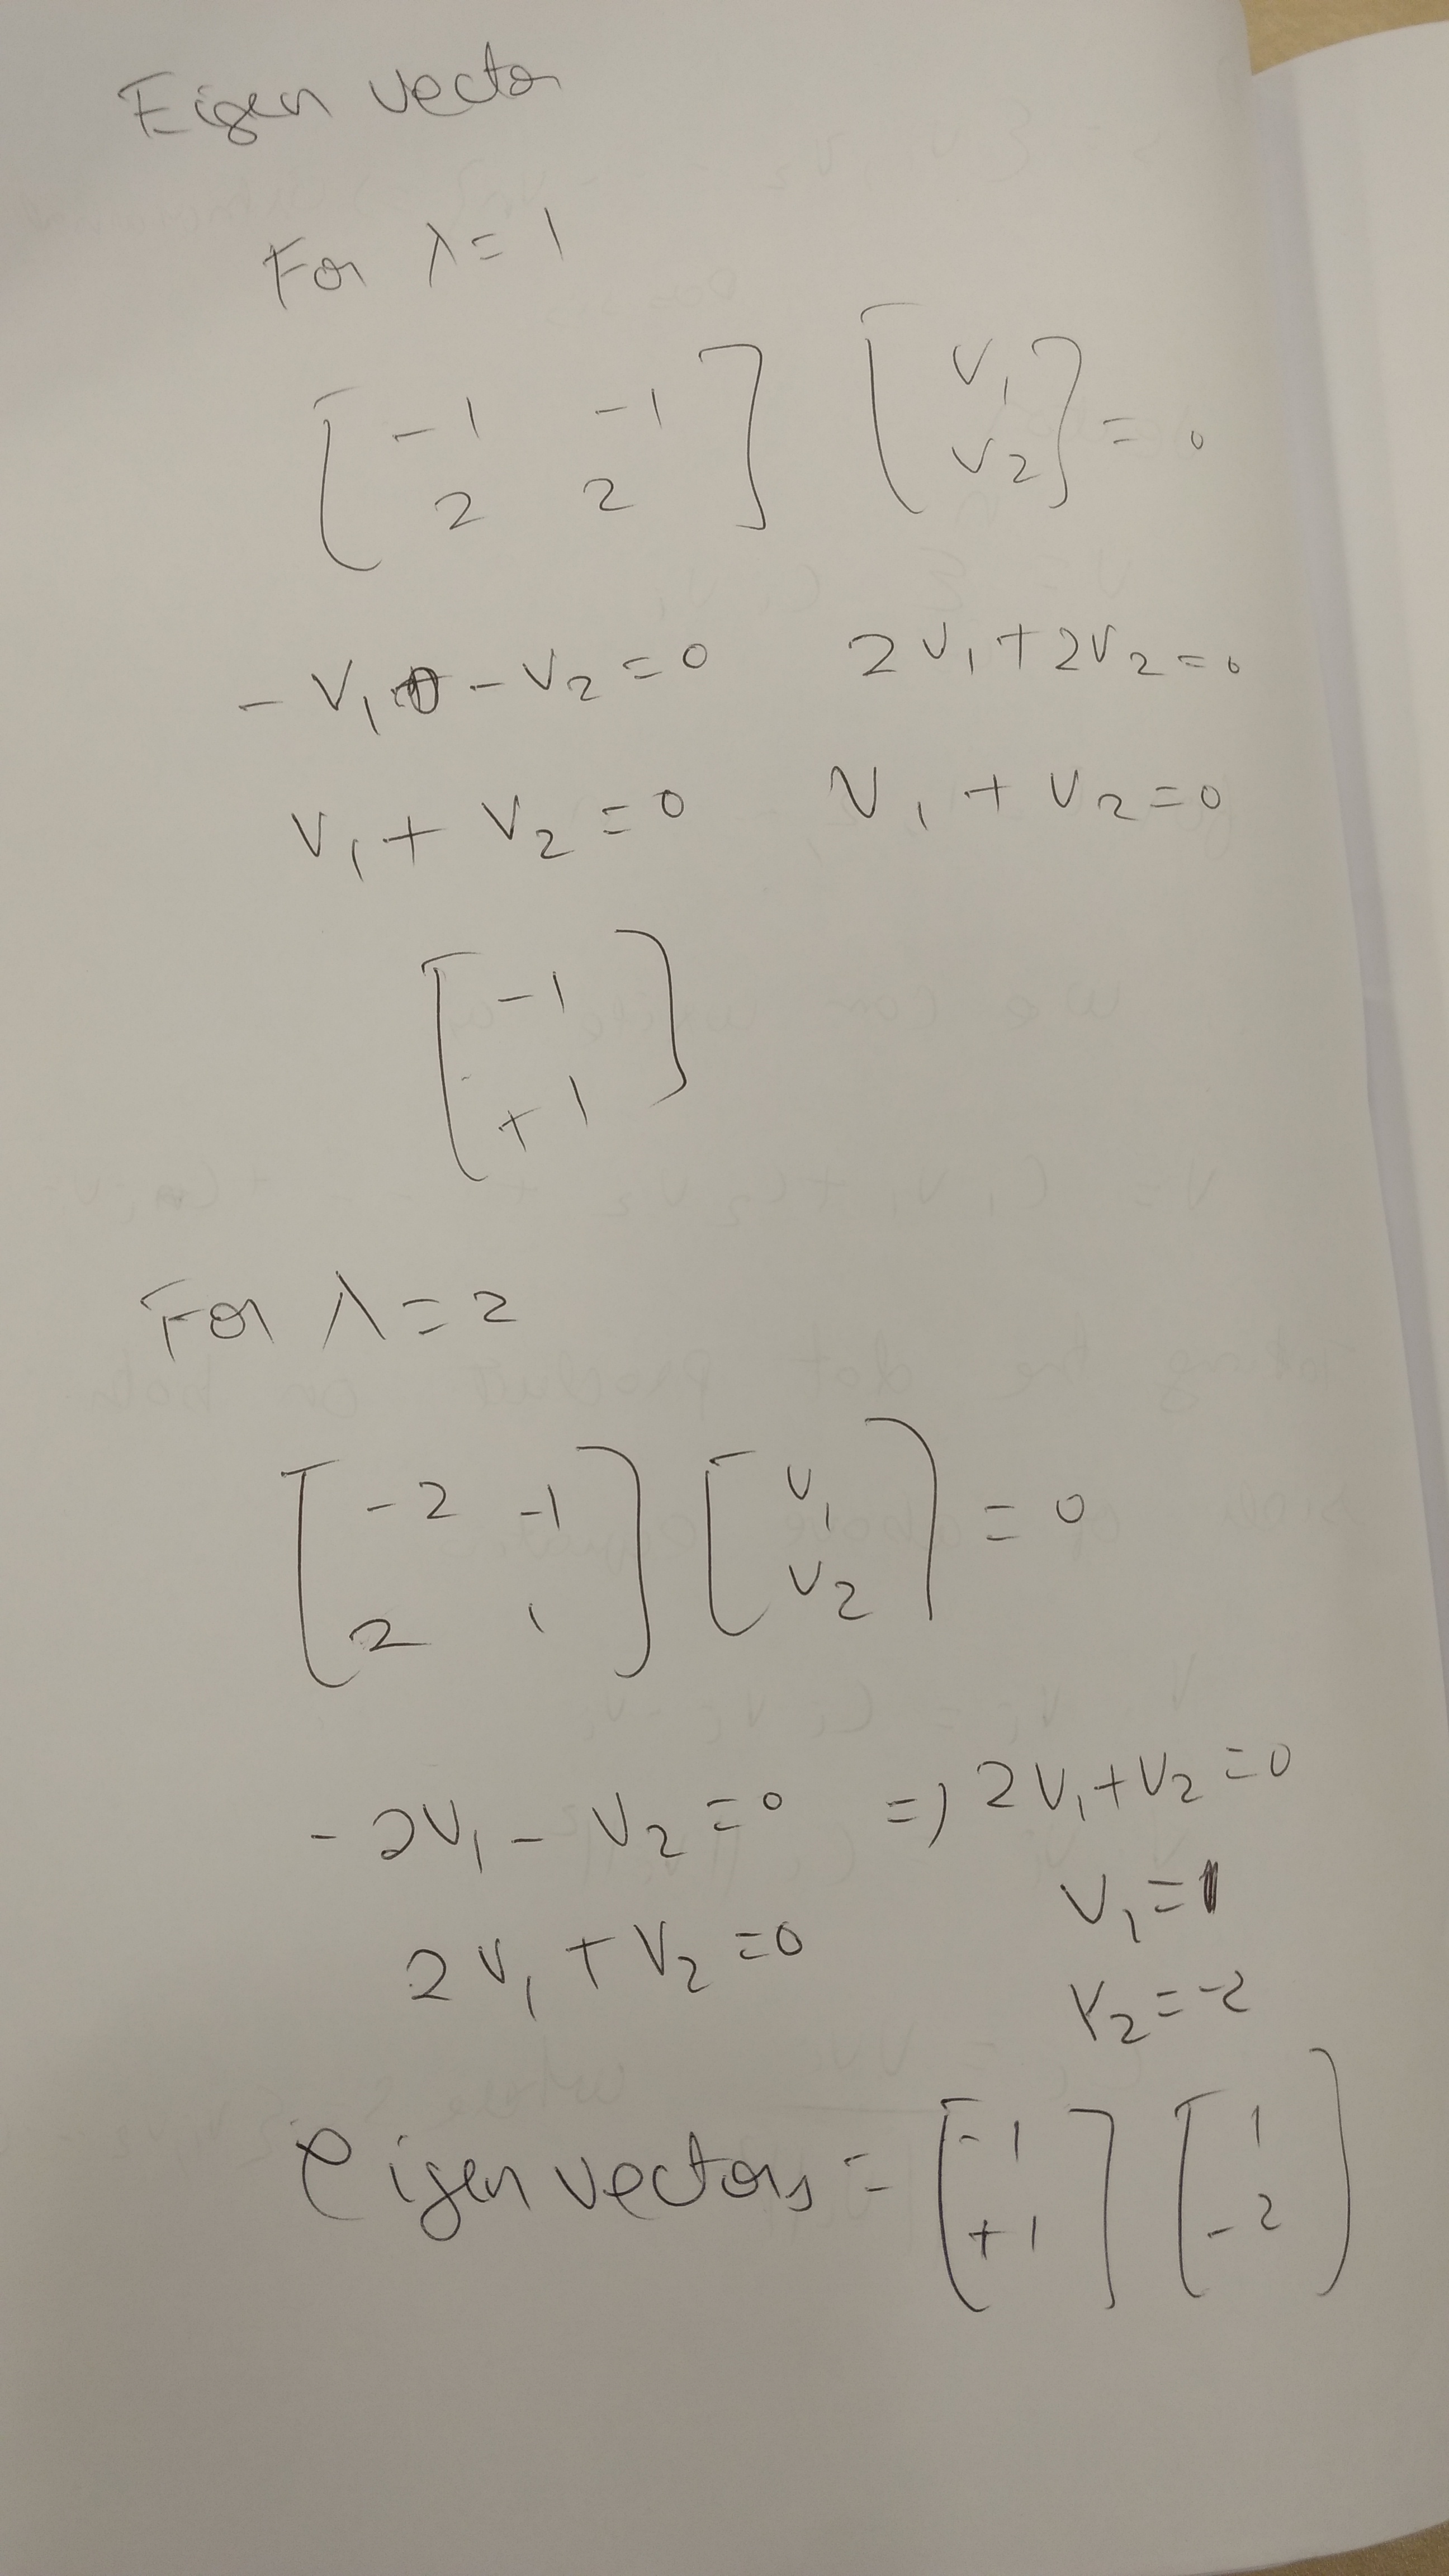 Eigen vector
For λ = 1
[ -1 -1 ] [ v₁ ] = 0
[ 2 2 ] [ v₂ ]
- v₁ - v₂ = 0 2v₁ + 2v₂ = 0
v₁ + v₂ = 0 v₁ + v₂ = 0
[ -1 ]
[ +1 ]
For λ = 2
[ -2 -1 ] [ v₁ ] = 0
[ 2 1 ] [ v₂ ]
- 2v₁ - v₂ = 0 => 2v₁ + v₂ = 0
v₁ = 1
2v₁ + v₂ = 0
v₂ = -2
eigen vectors = [ -1 ] [ 1 ]
[ +1 ] [ -2 ]